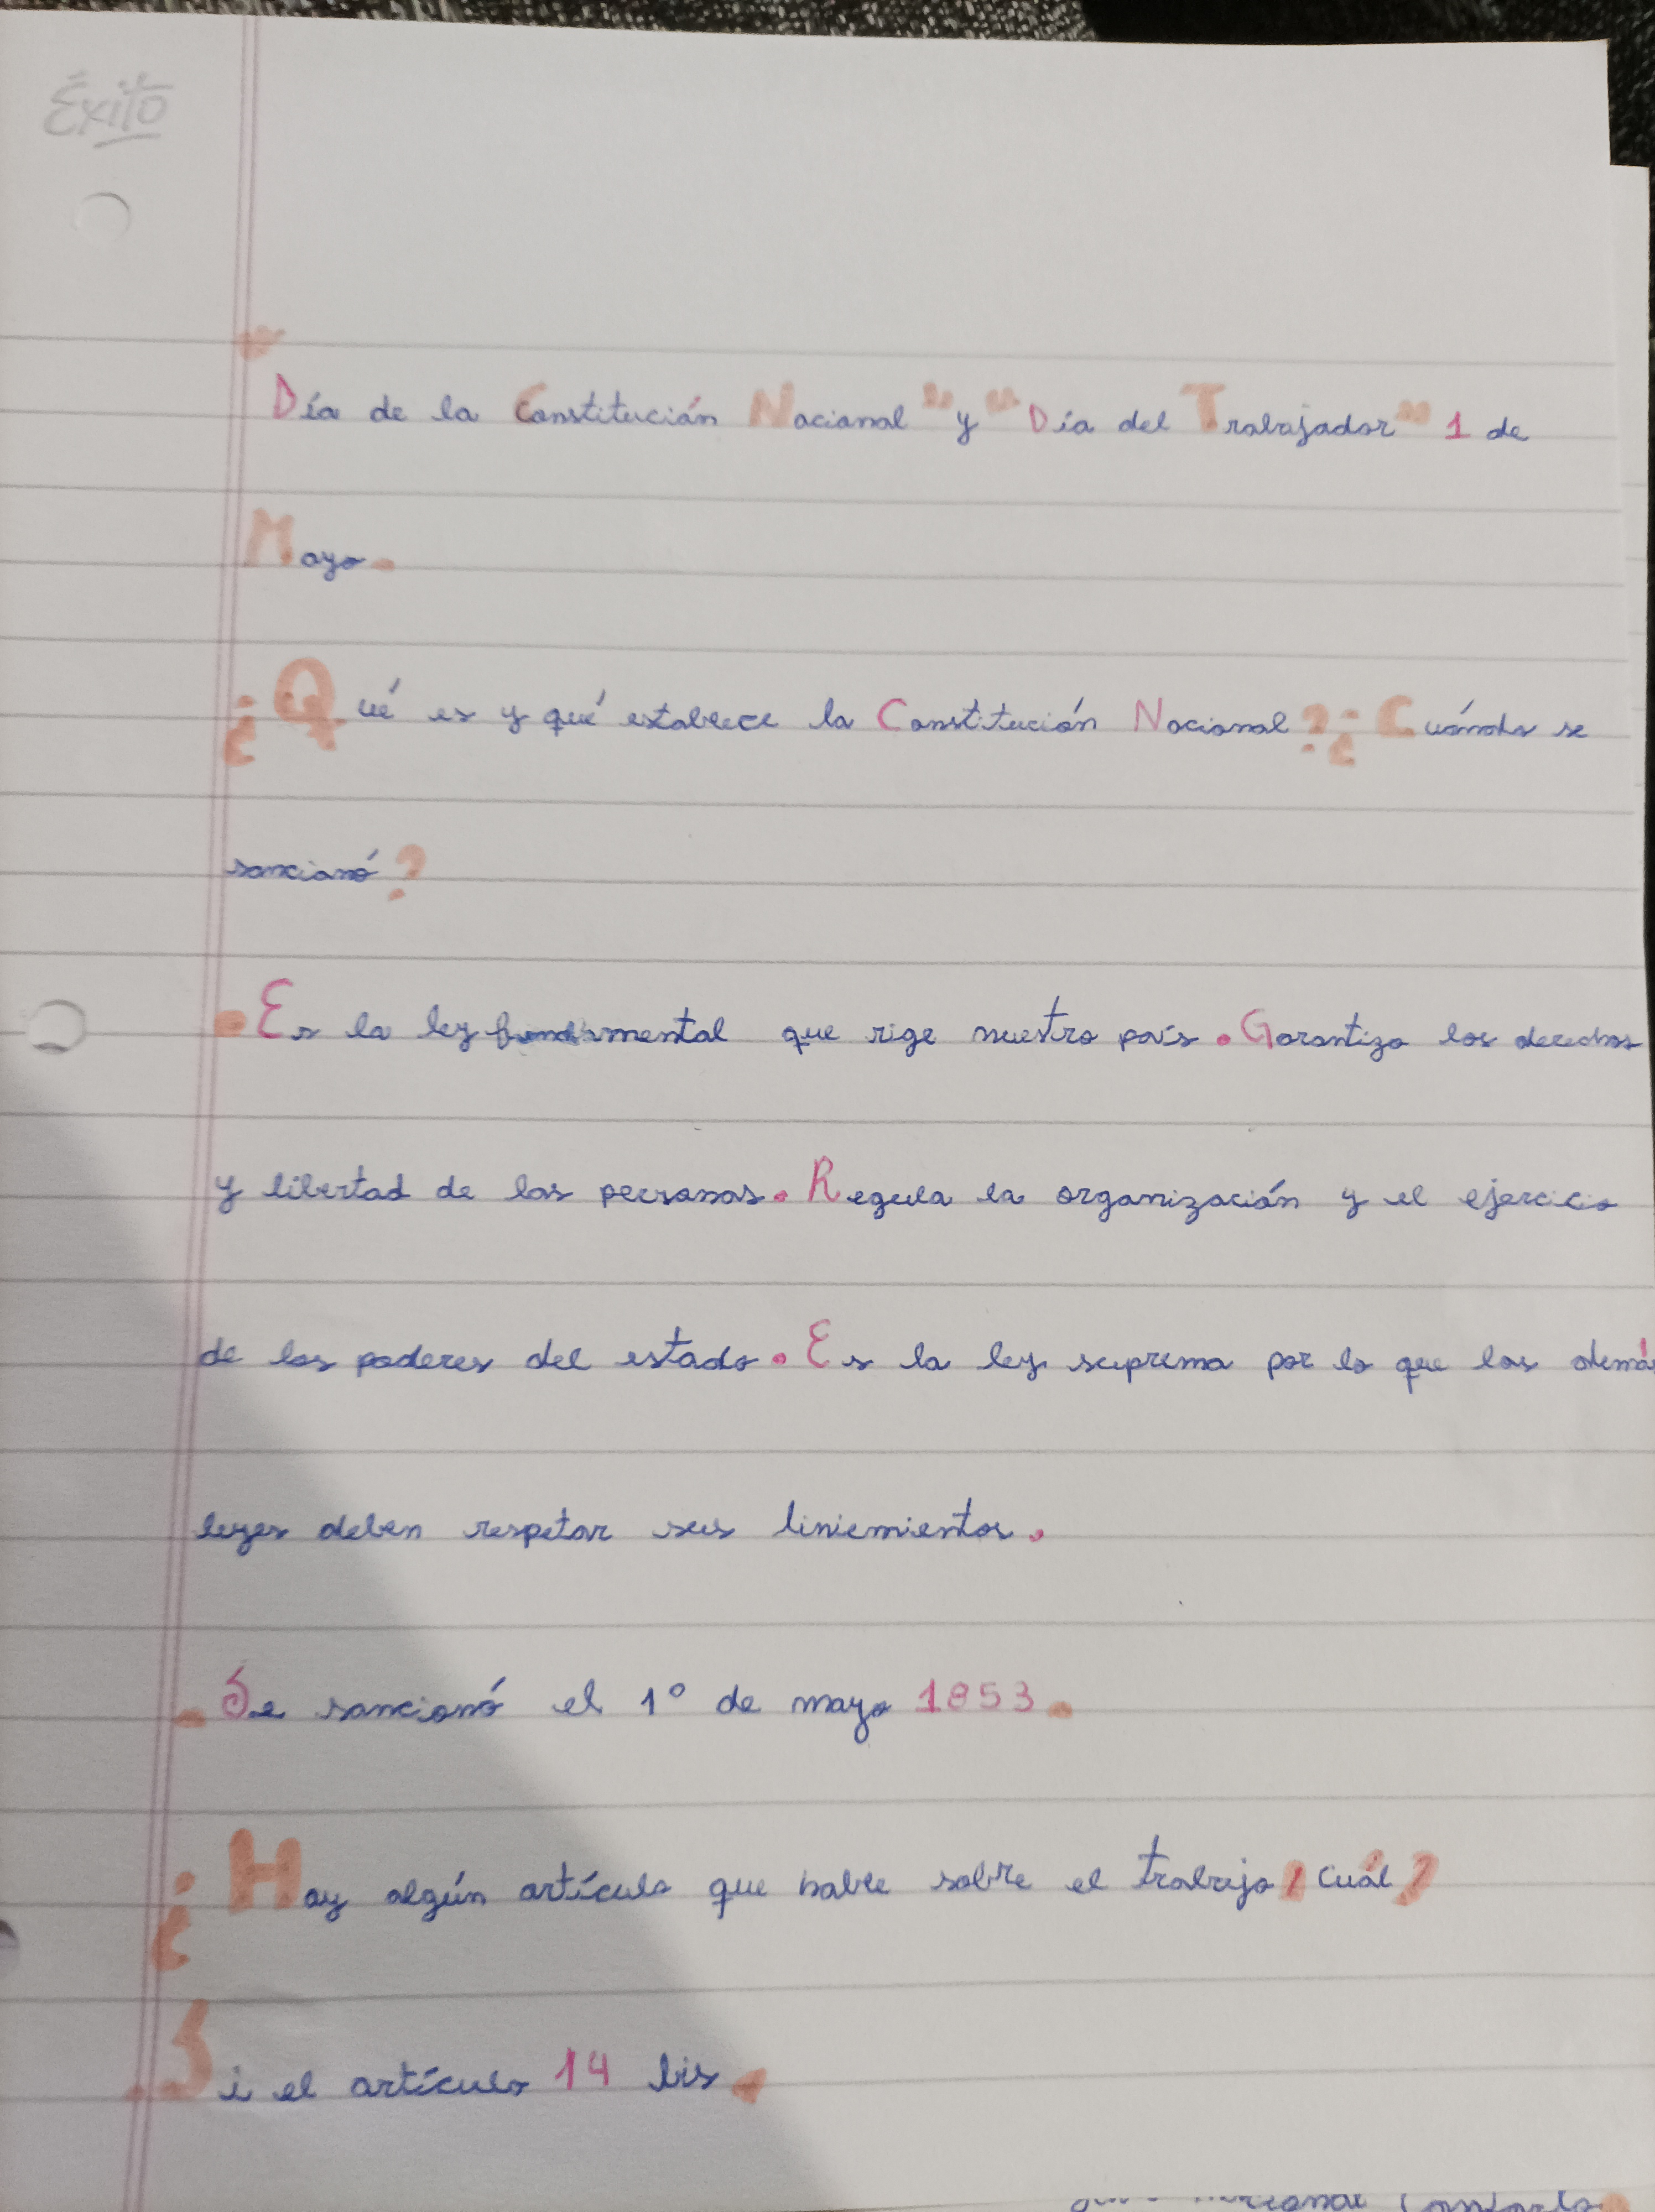 Éxito
"Día de la Constitución Nacional" y "Día del Trabajador" 1 de
Mayo.
¿Qué es y qué establece la Constitución Nacional?¿Cuándo se
sancionó?
•Es la ley fundamental que rige nuestro país. Garantiza los derechos
y libertad de las personas. Regula la organización y el ejercicio
de los poderes del estado. Es la ley suprema por lo que las demás
leyes deben respetar sus liniemientos.
.Se sancionó el 1º de mayo 1853.
¿Hay algún artículo que hable sobre el trabajo? Cuál?
.Si el artículo 14 bis.